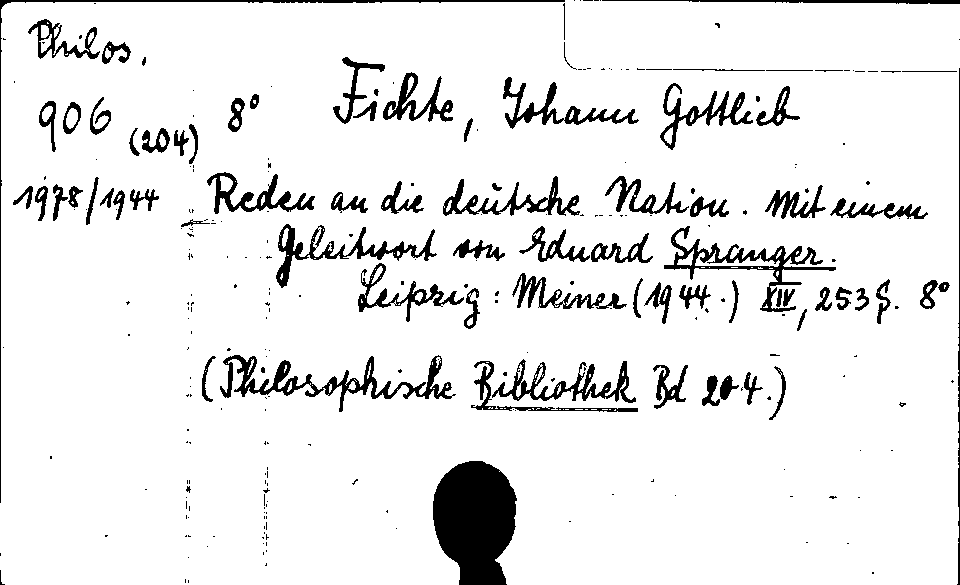 Philos.
906 (204) 8° Fichte, Johann Gottlieb
1978/1944 Reden an die deutsche Nation. Mit einem
Geleitwort von Eduard Spranger.
Leipzig: Meiner (1944.) XIV, 253 S. 8°
(Philosophische Bibliothek Bd 204.)